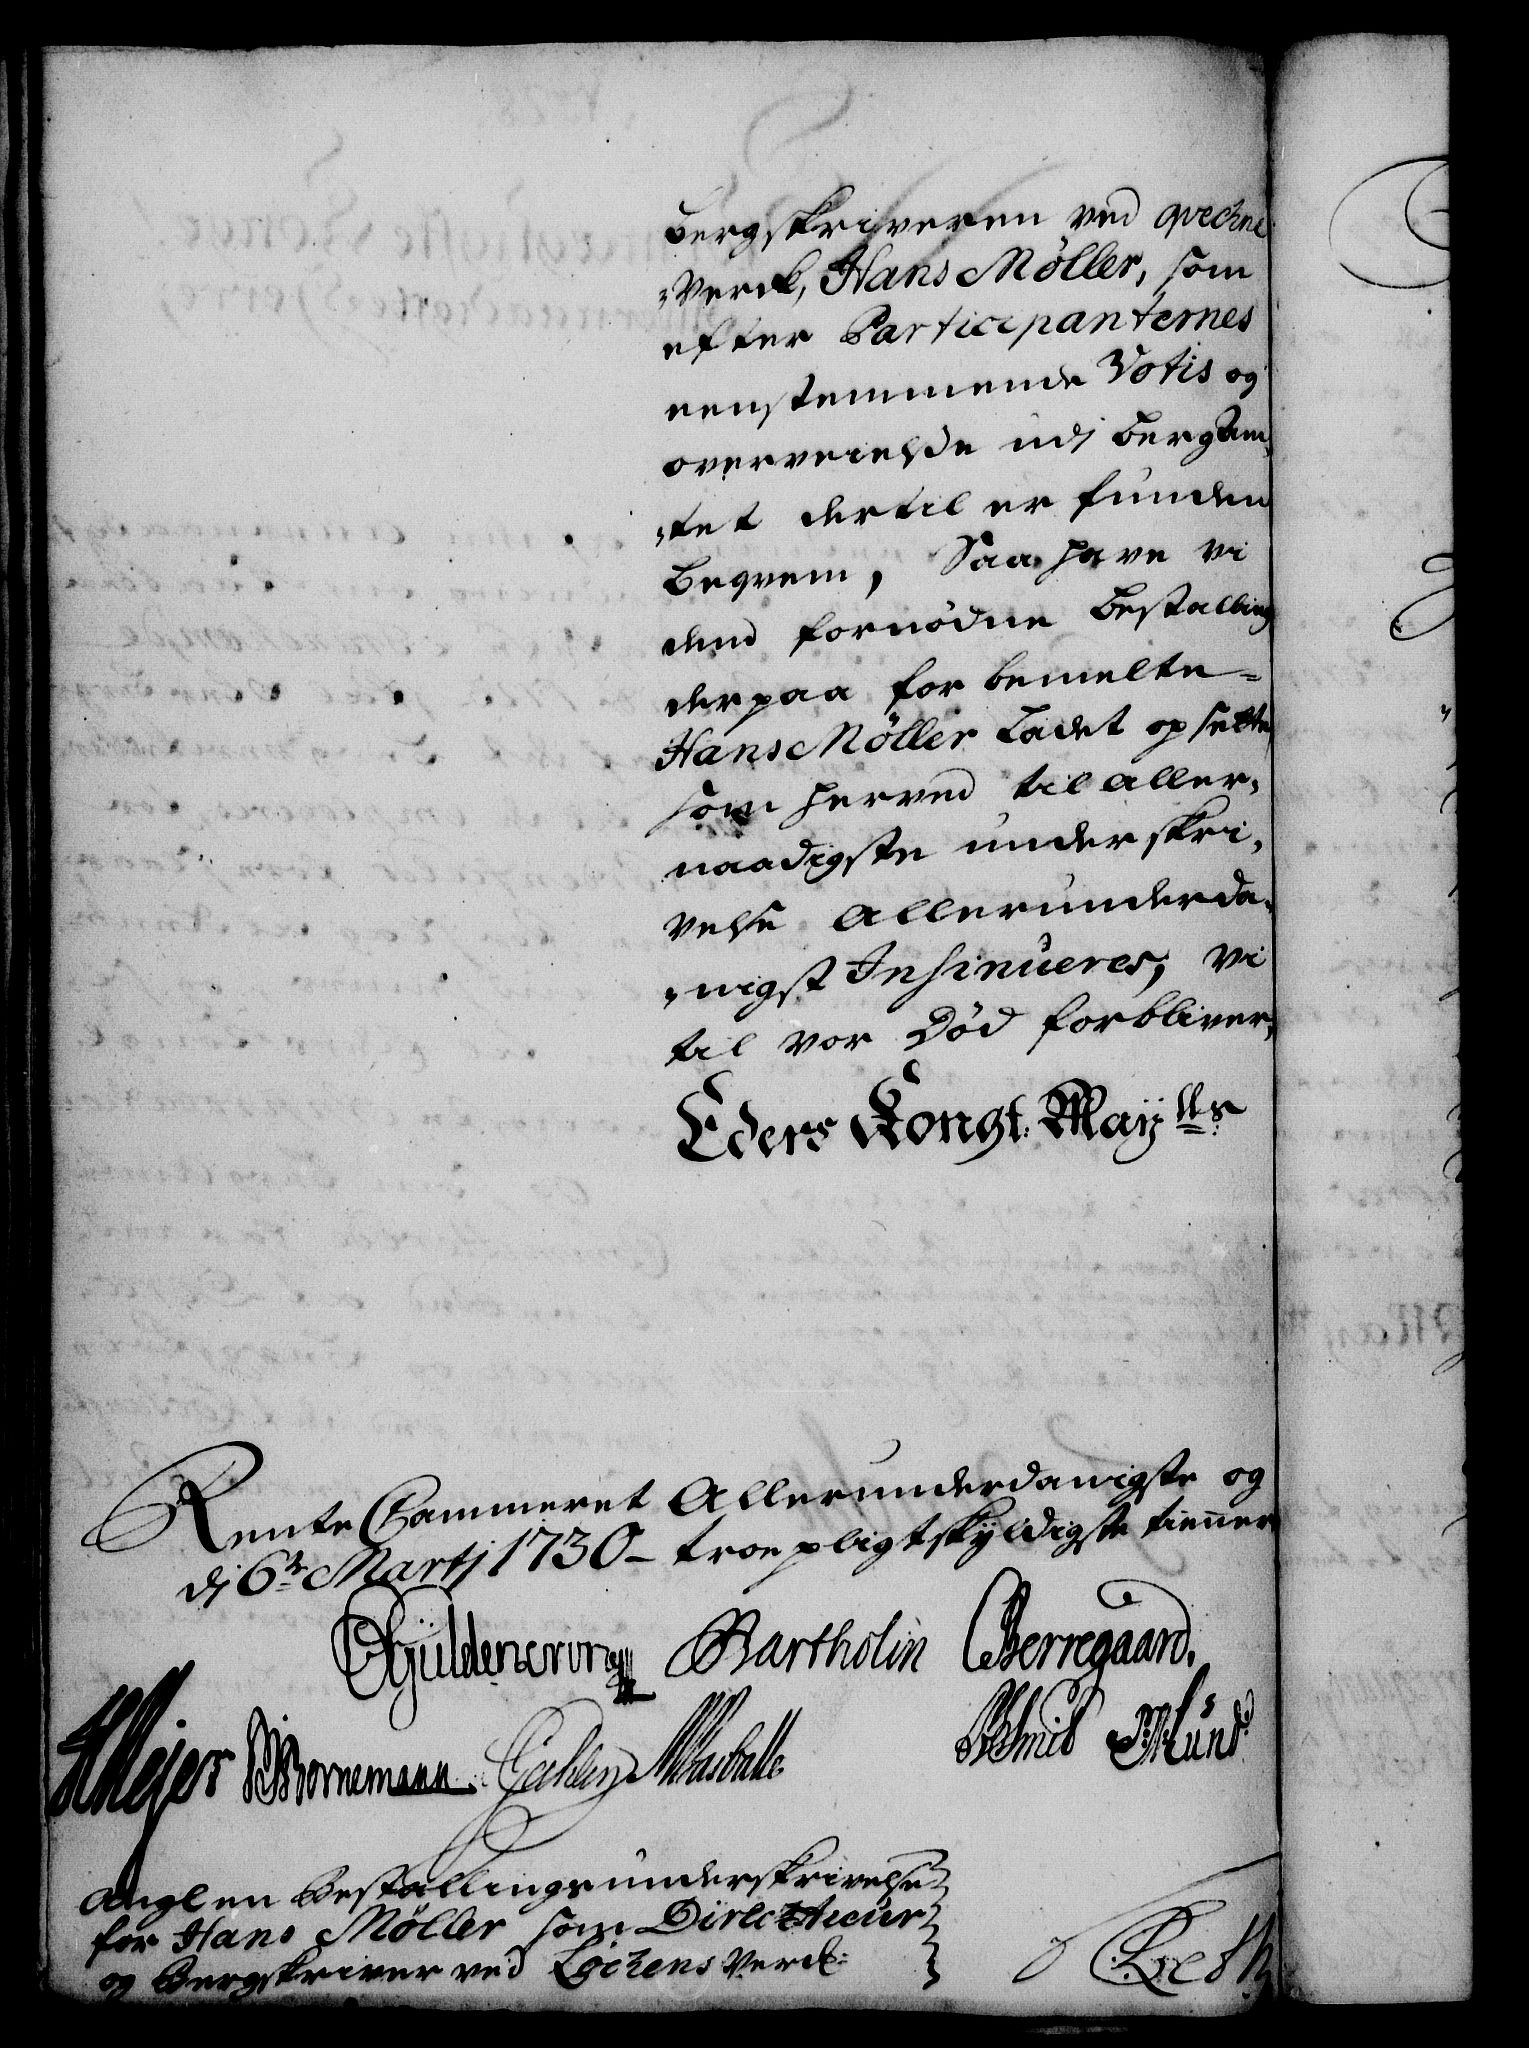 Bergskriveren ved qvechne
-Verck, Hans Møller, som
efter Participanternes
eenstemmende Votis og
overveielse udj Bergam-
-tet dertil er funden
beqvem, Saa have vi
dend fornødne Bestalling
derpaa for bemelte
Hans Møller Ladet opsette
som herved til aller-
naadigste underskri-
velse Allerunderda-
-nigst Insinueres, vi
til vor Død forbliver,
Eders Kongl. Mayttes
Rente Cammeret Allerunderdanigste og
dj 6te Martj 1730 - troepligtskyldigste tienner
CGüldencrone Bartholin CBerregaard.
HMejer Bornemann
Ang: en Bestallings underskrivelse
for Hans Møller som Directeur
og Bergskriver ved Løchens Verck: